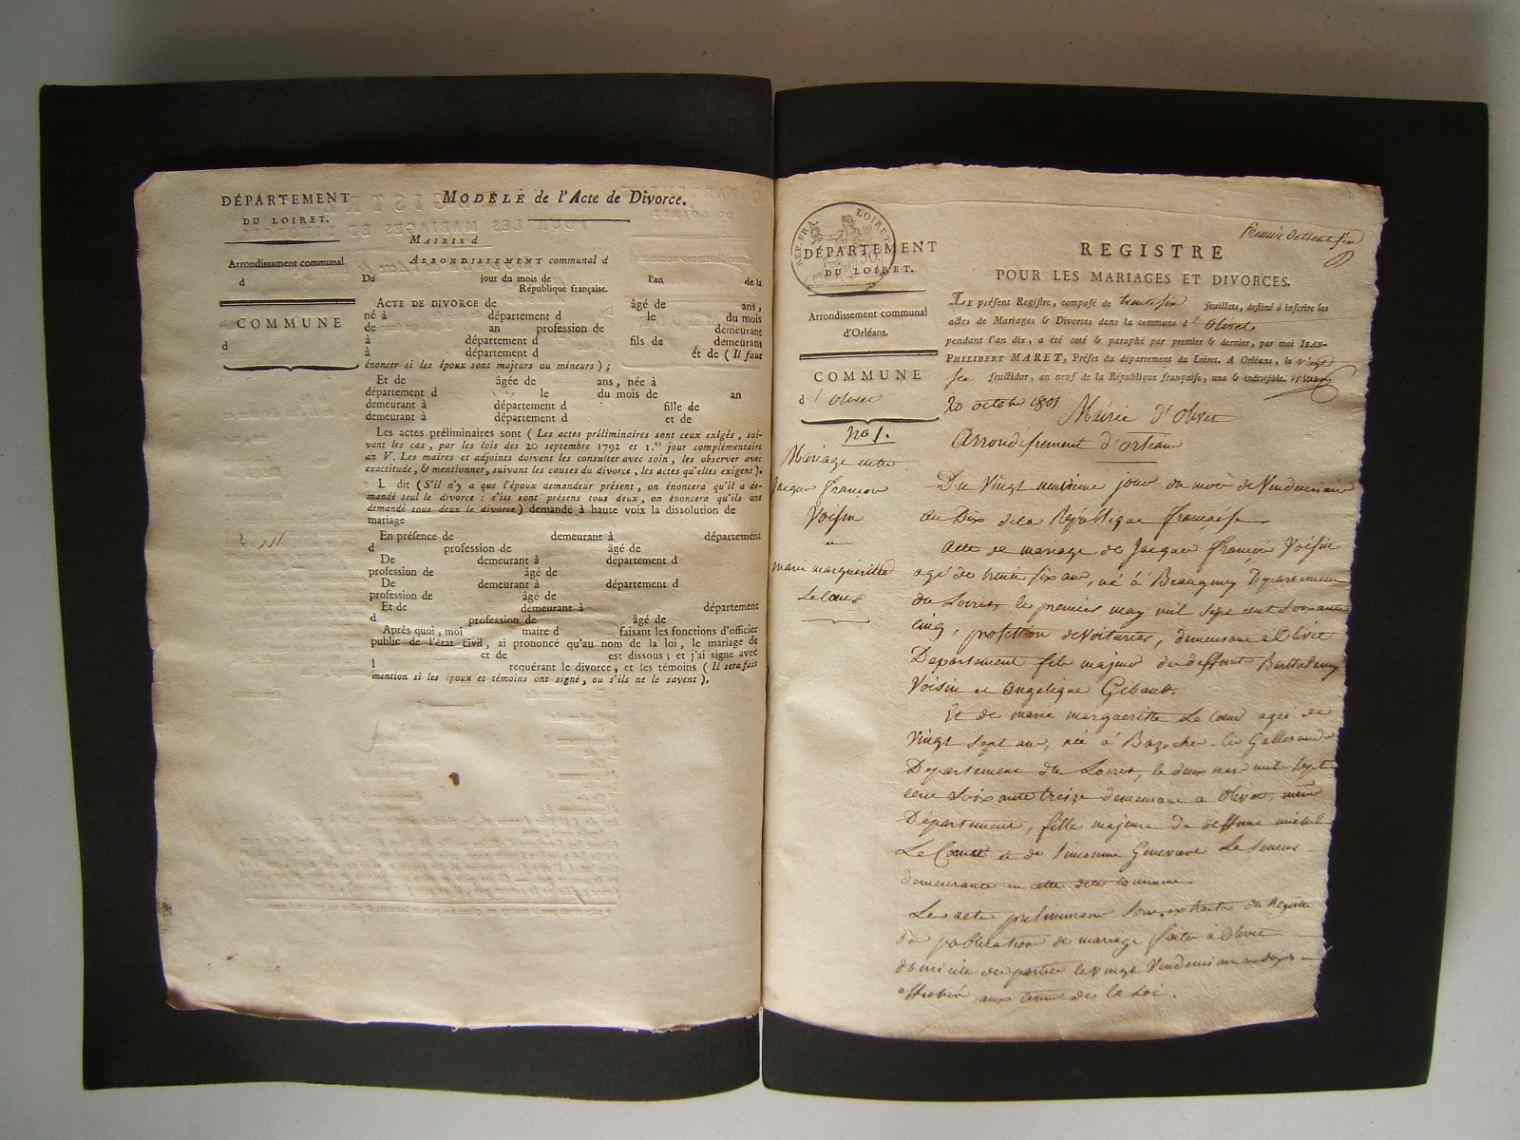 DÉPARTEMENT
DU LOIRET.
Arrondissement communal
d
COMMUNE
d
MODÈLE de l'Acte de Divorce.
MAIRIE d
ARRONDISSEMENT communal d
Du jour du mois de l'an de la
République française.
ACTE DE DIVORCE de âgé de ans,
né à département d le du mois
de an profession de demeurant
à département d fils de demeurant
à département d et de ( Il faut
énoncer si les époux sont majeurs ou mineurs ) ;
Et de âgée de ans, née à
département d le du mois de an
demeurant à département d fille de
demeurant à département d et de
Les actes préliminaires sont ( Les actes préliminaires sont ceux exigés, sui-
vant les cas, par les lois des 20 septembre 1792 et 1.er jour complémentaire
an V. Les maires et adjoints doivent les consulter avec soin, les observer avec
exactitude, & mentionner, suivant les causes du divorce, les actes qu'elles exigent ).
l dit ( S'il n'y a que l'époux demandeur présent, on énoncera qu'il a de-
mandé seul le divorce : s'ils sont présens tous deux, on énoncera qu'ils ont
demandé tous deux le divorce ) demandé à haute voix la dissolution de
mariage
En présence de demeurant à département
d profession de âgé de
De demeurant à département d
profession de âgé de
De demeurant à département d
profession de âgé de
Et de demeurant à département
d profession de âgé de
Après quoi, moi maire d faisant les fonctions d'officier
public de l'état civil, ai prononcé qu'au nom de la loi, le mariage de
et de est dissous ; et j'ai signé avec
l requérant le divorce, et les témoins ( Il sera fait
mention si les époux et témoins ont signé, ou s'ils ne le savent ).
REP. FRA. LOIRET
DÉPARTEMENT
DU LOIRET.
Arrondissement communal
d'Orléans.
COMMUNE
d'Olivet
No 1.
Mariage entre
Jacques françois
Voisin
marie margueritte
Le Coeur
REGISTRE
POUR LES MARIAGES ET DIVORCES.
LE présent Registre, composé de trente six feuillets, destiné à inscrire les
actes de Mariages & Divorces dans la commune d'Olivet
pendant l'an dix, a été coté & paraphé par premier & dernier, par moi JEAN-
PHILIBERT MARET, Préfet du département du Loiret. A Orléans, le vingt
six fructidor, an neuf de la République française, une & indivisible.
20 octobre 1801 Mairie d'Olivet
Arrondissement d'Orleans
Du Vingt neuvieme jour du mois de Vendemiaire
an Dix de la Republique francaise
Acte de mariage de Jacques francois Voisin
agé de trente six ans, né à Beaugency Departement
du Loiret le premier may mil sept cent soixante
cinq, profession de Voiturier, demeurant a Olivet
Departement fils majeur de deffunt Barthelemy
Voisin et angelique Gibault.
Et de marie margueritte Le Coeur agée de
Vingt sept ans, née à Bazoches les Gallerandes
Departement du Loiret, le deux mil sept
cent soixante treize demeurant a Olivet, même
Département, fille majeure de deffunt michel
Le Coeur et de Genevieve
demeurante en cette dite commune
Les actes preliminaires sont extraits du Registre
de publication de mariage faite à Olivet
domicile des parties le vingt Vendemiaire
affiché aux termes de la Loi.